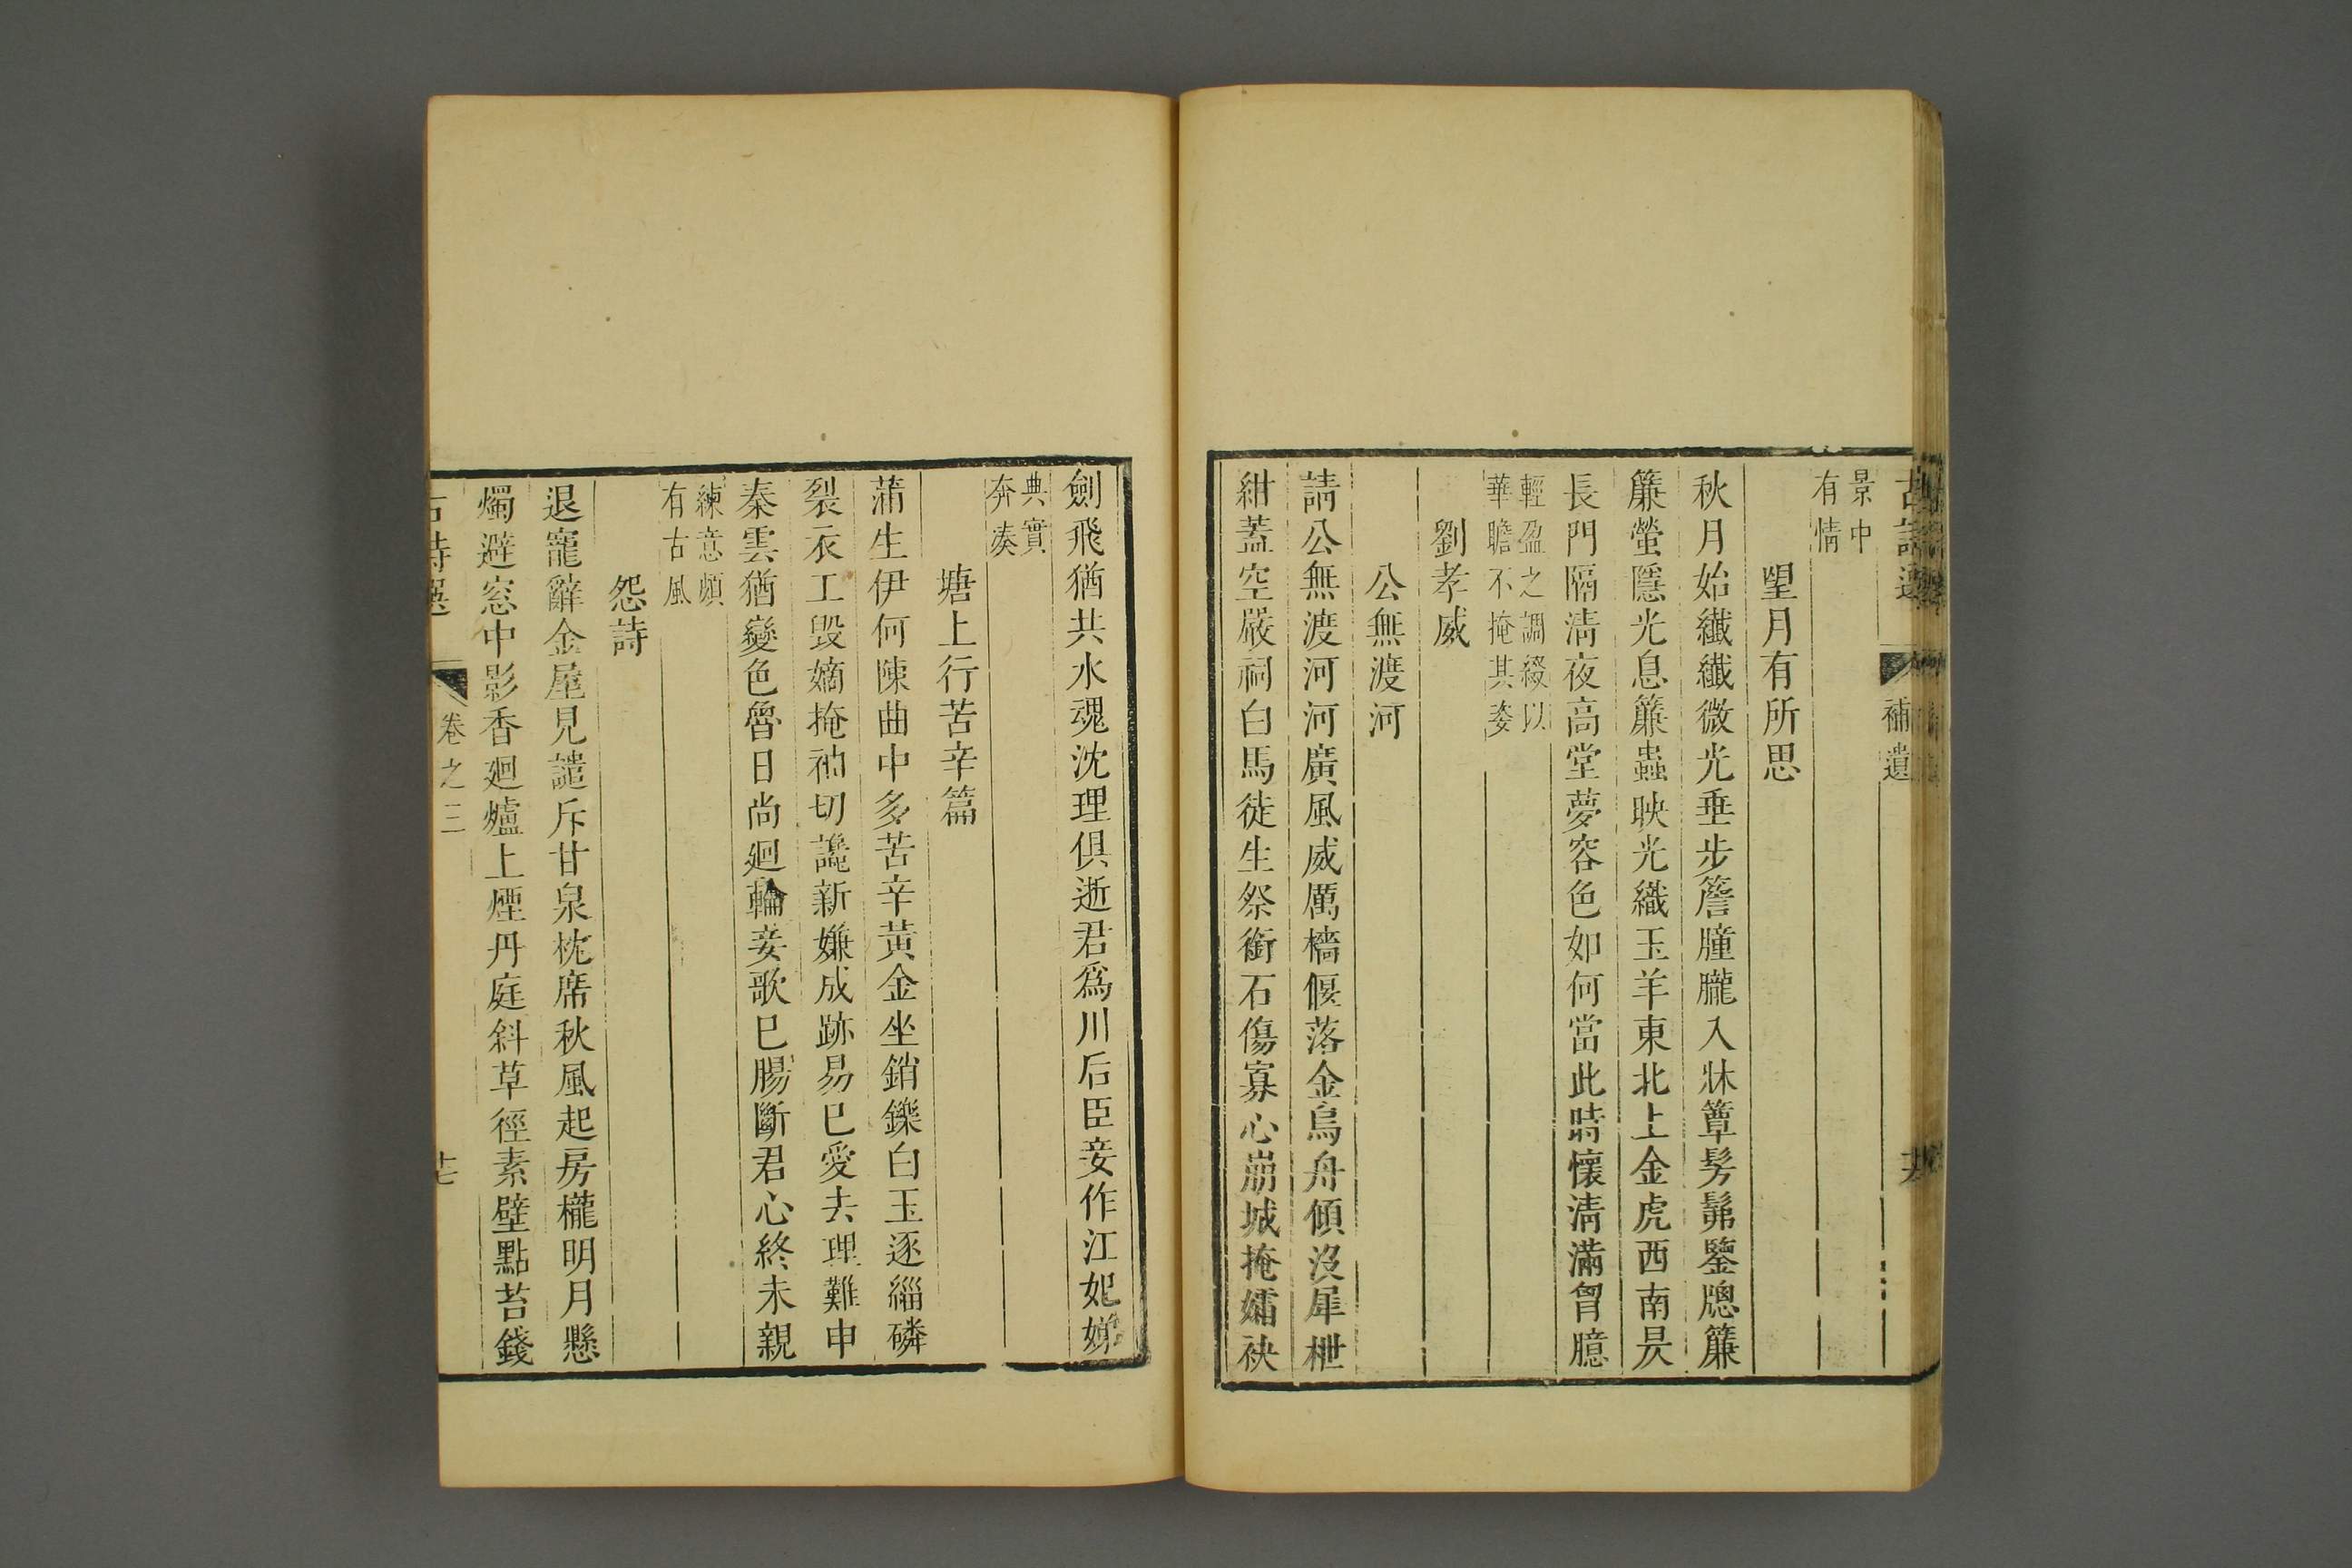 古詩選 補遺
景中
有情
望月有所思
秋月始纖纖微光垂步簷朣朧入牀簟髣髴鑒牕簾
簾螢隱光息簾蟲映光織玉羊東北上金虎西南昃
長門隔清夜高堂夢容色如何當此時懷清滿胷臆
輕盈之調綴以
華瞻不掩其姿
劉孝威
公無渡河
請公無渡河河廣風威厲檣偃落金烏舟傾沒犀枻
紺蓋空嚴祠白馬徒生祭銜石傷寡心崩城掩孀袂
劍飛猶共水魂沈理俱逝君爲川后臣妾作江妃娣
典實
奔湊
塘上行苦辛篇
蒲生伊何陳曲中多苦辛黃金坐銷鑠白玉逐緇磷
裂衣工毀嫡掩袖切讒新嫌成跡易已愛去理難申
秦雲猶變色魯日尚廻輪妾歌已腸斷君心終未親
練意頗
有古風
怨詩
退寵辭金屋見譴斥甘泉枕席秋風起房櫳明月懸
燭避窓中影香廻爐上煙丹庭斜草徑素壁點苔錢
古詩選 卷之三 十七